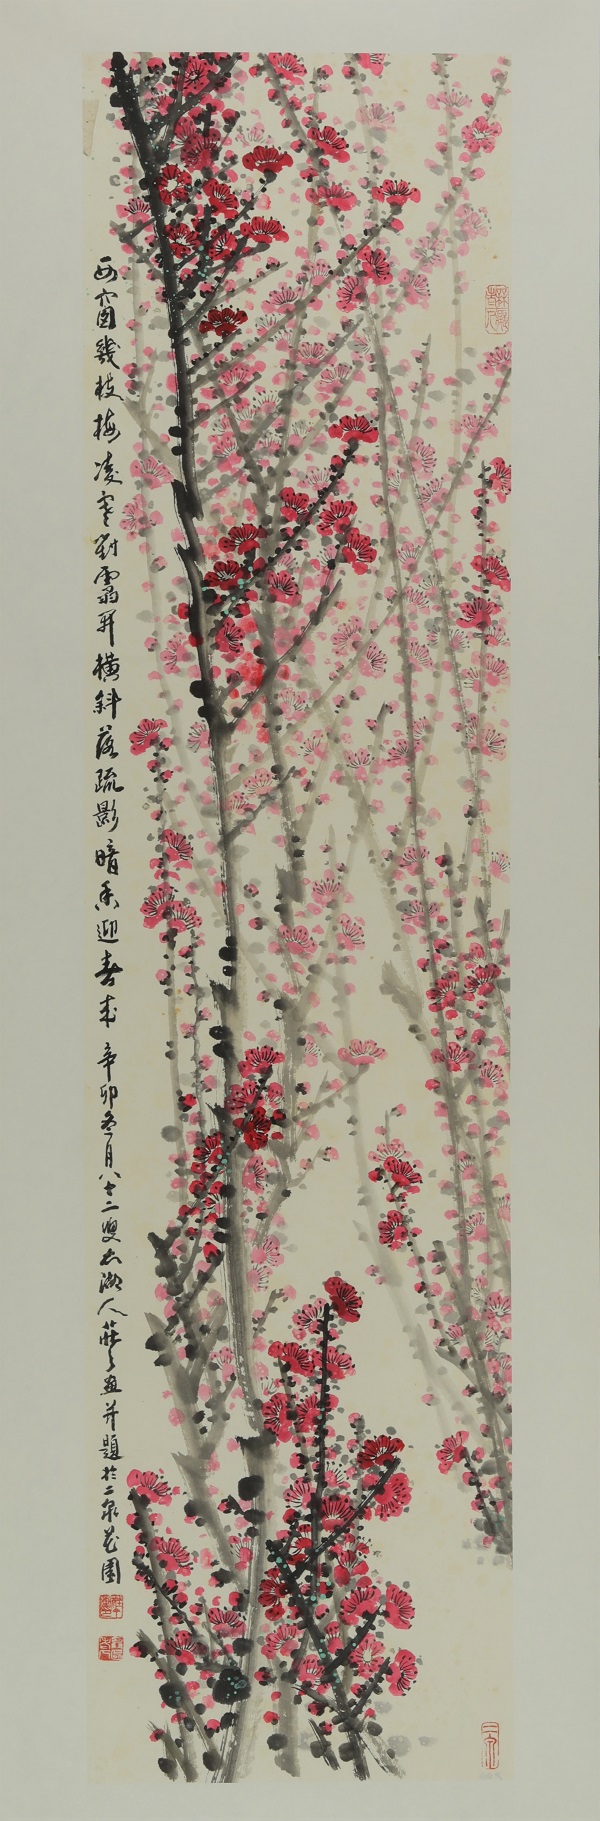 西窗幾枝梅凌寒對霜開橫斜落疏影暗香迎春來 辛卯冬月八十二叟太湖人莊之画并題於二泉花園
二泉